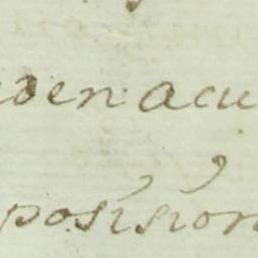 den acu
posision